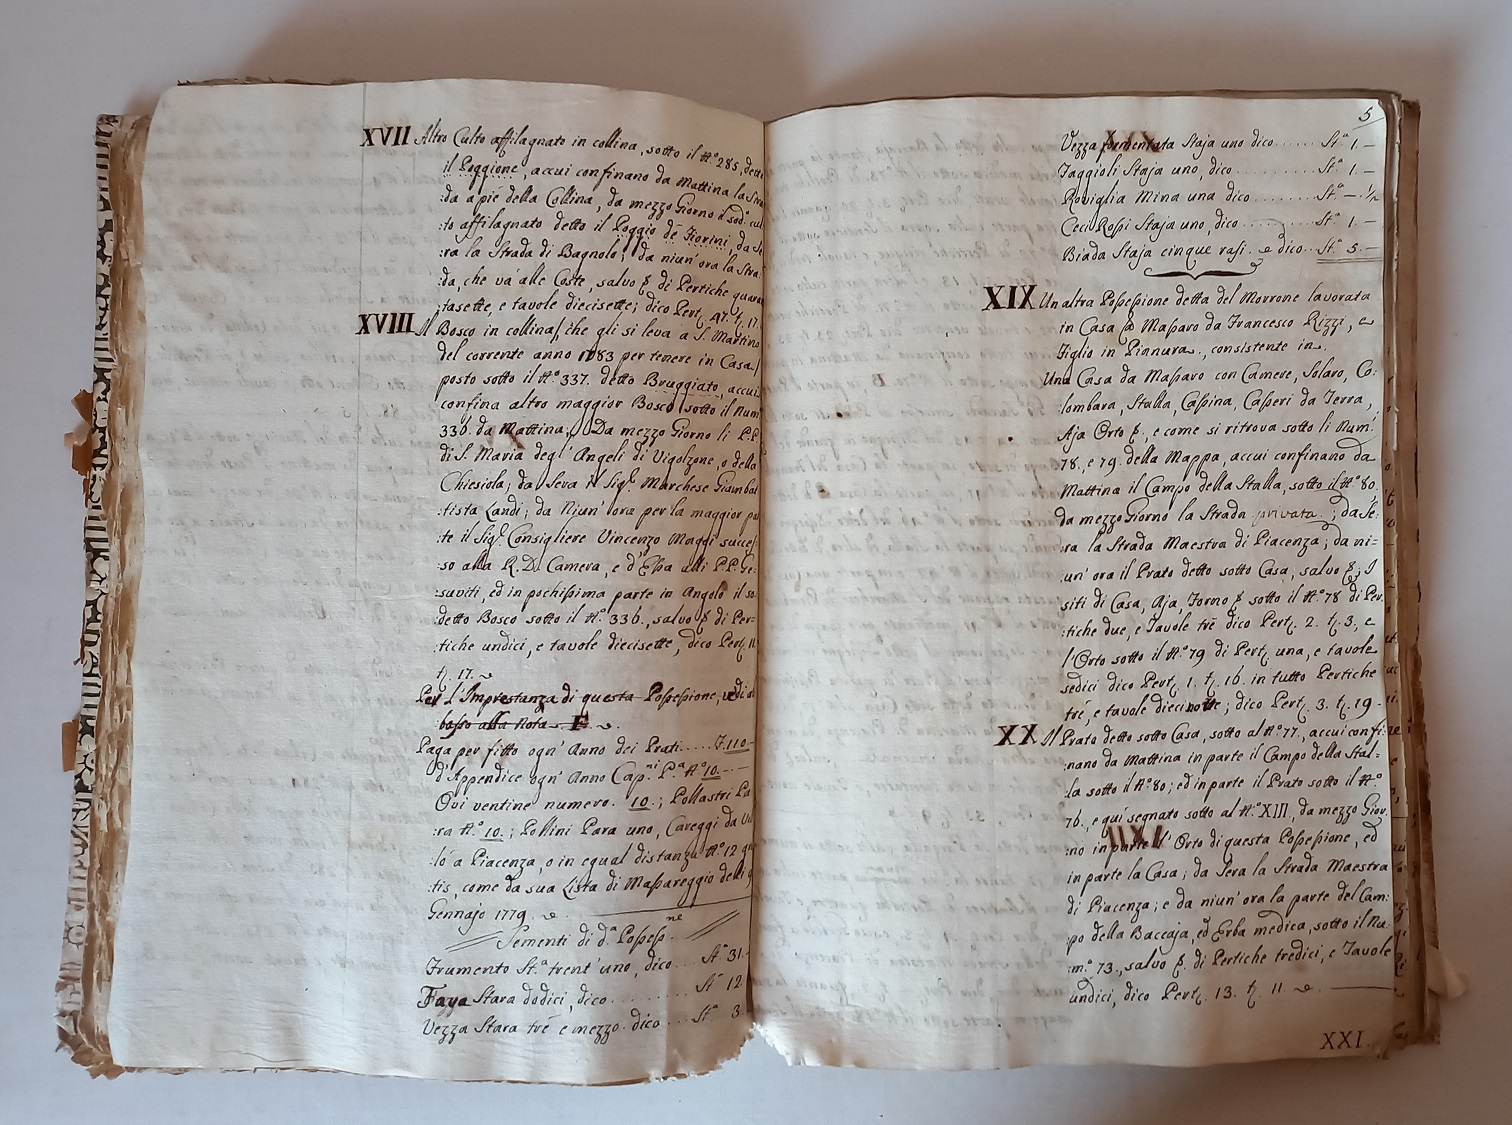 XVII Altro Culto affilagnato in collina, sotto il N.º 285, detto
il Poggione, accui confinano da Mattina la Stra
:da a piè della Collina, da mezzo Giorno il sod.º cul
:to affilagnato detto il Poggio dè Fiorini, da Se
:ra la Strada di Bagnolo; da niun' ora la Stra
:da, che và alle Coste, salvo &. di Pertiche quaran
:tasette, e tavole diecisette; dico Pert. 47. t. 17.
XVIII Il Bosco in collina/ che gli si leva a S. Martino
del corrente anno 1783 per tenere in Casa/
posto sotto il N.º 337. detto Bruggiato, accui
confina altro maggior Bosco sotto il Num
336. da Mattina; Da mezzo Giorno li P.P.
di S. Maria degl' Angeli di Vigolzone, o della
Chiesiola; da Seva il Sig.r Marchese Giambat
:tista Landi; da Niun' ora per la maggior par
:te il Sig.r Consigliere Vincenzo Maggi succes
:so alla R. D. Camera, e d'Essa alli P.P. Ge:
:suviti, ed in pochissima parte in Angolo il so
:detto Bosco sotto il N.º 336., salvo &. di Per=
:tiche undici, e tavole diecisette, dico Pert. 11
t. 17.
Per l'Imprestanza di questa Possessione, vedi a
basso alla Nota F
Paga per fitto ogn' Anno dei Prati..... £.110.—
d'Appendice ogn' Anno Cap.ni P.a N.º 10.——
Ovi ventine numero. 10.; Pollastri Pa
:ra N.º 10.; Pollini Para uno, Careggi da Vi
:lò a Piacenza, o in egual distanza N.º 12 gra
:tis, come da sua Lista di Massareggio delli
Gennajo 1779.
Sementi di d.a Possess.ne
Frumento St.a trent' uno, dico.... St.a 31.
Fava Stara dodici, dico .......... St.a 12
Vezza Stara trè e mezzo. dico .... St.a 3.
5
Vezza formentata Staja uno dico....... St.a 1.—
Faggioli Staja uno, dico .......... St.a 1.—
Roviglia Mina una dico ......... St.a —.½
Ceci Rossi Staja uno, dico ......... St.a 1.—
Biada Staja cinque rasi. e dico.. St.a 5.—
XIX Un altra Possessione detta del Morrone lavorata
in Casa da Massaro da Francesco Rizzi, e
Figlio in Piannura., consistente in.
Una Casa da Massaro con Camere, Solaro, Co:
lombara, Stalla, Cassina, Casseri da Terra,
Aja Orto &., e come si ritrova sotto li Num.
78., e 79. della Mappa, accui confinano da
Mattina il Campo della Stalla, sotto il N.º 80.
da mezzo Giorno la Strada privata; da Se:
:ra la Strada Maestra di Piacenza; da ni=
:un' ora il Prato detto sotto Casa, salvo &; I
siti di Casa, Aja, Forno & sotto il N.º 78 di Per
:tiche due, e Tavole trè dico Pert. 2. t. 3., e
l'Orto sotto il N.º 79 di Pert. una, e tavole
sedici dico Pert. 1. t. 16. in tutto Pertiche
trè, e tavole diecinove; dico Pert. 3. t. 19.
XX Il Prato detto sotto Casa, sotto al N.º 77., accui confi:
:nano da Mattina in parte il Campo della Stal=
:la sotto il N.º 80; ed in parte il Prato sotto il N.º
76., e quì segnato sotto al N.º XIII, da mezzo Gior
:no in parte l' Orto di questa Possessione, ed
in parte la Casa; da Sera la Strada Maestra
di Piacenza; e da niun' ora la parte del Cam:
:po della Baccaja, ed Erba medica, sotto il Nu:
:m.º 73., salvo &. di Pertiche tredici, e Tavole
undici, dico Pert. 13. t. 11
XXI